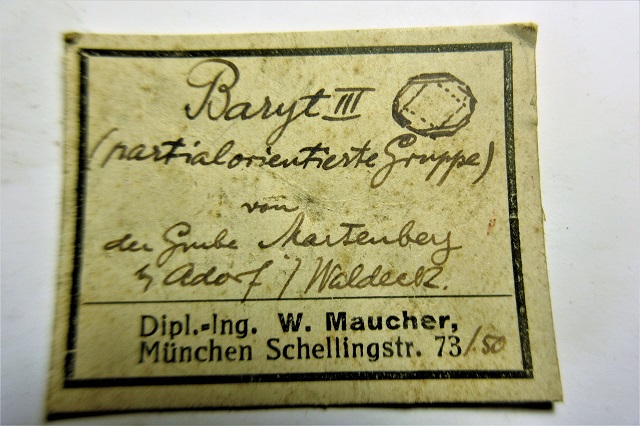 Baryt III
(partialorientierte Gruppe)
von
der Grube Martenberg
b Adorf / Waldeck.
Dipl.-Ing. W. Maucher,
München Schellingstr. 73 /.50